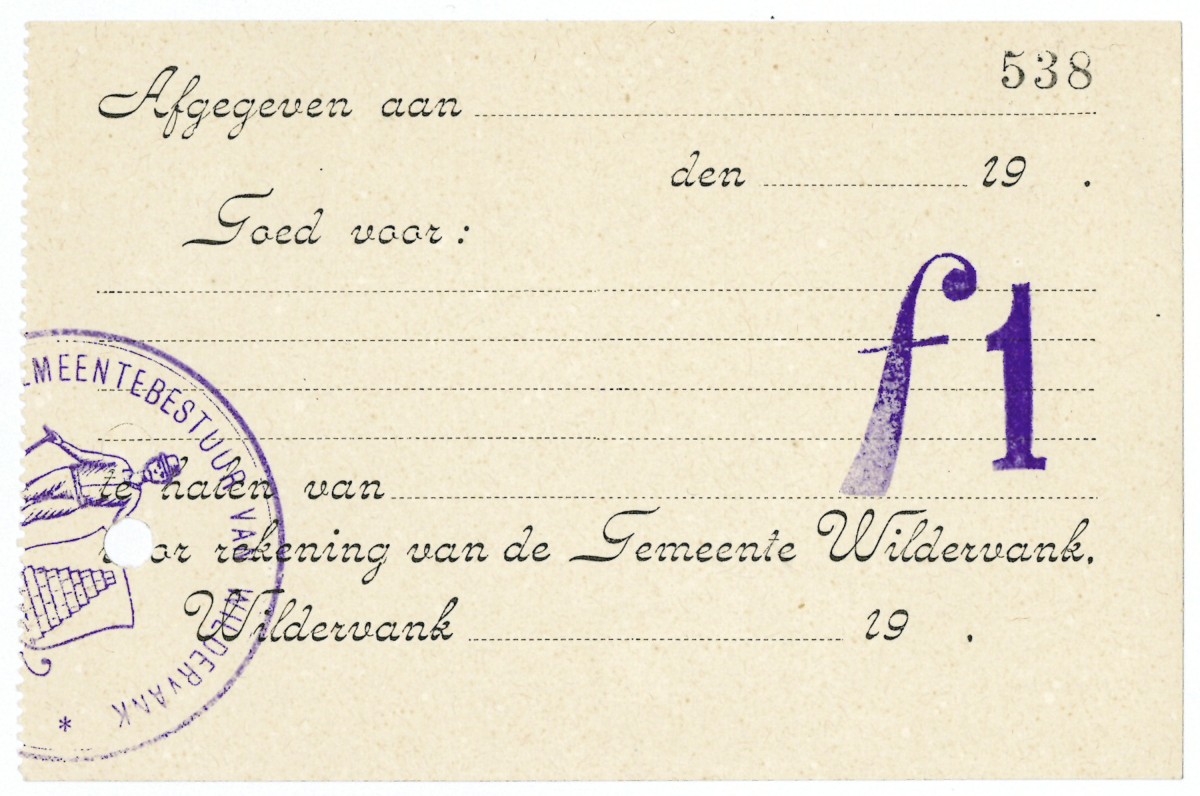 538
Afgegeven aan
den 19 .
Goed voor:
f1
te halen van
voor rekening van de Gemeente Wildervank.
Wildervank 19 .
EMEENTEBESTUUR VAN WILDERVANK *